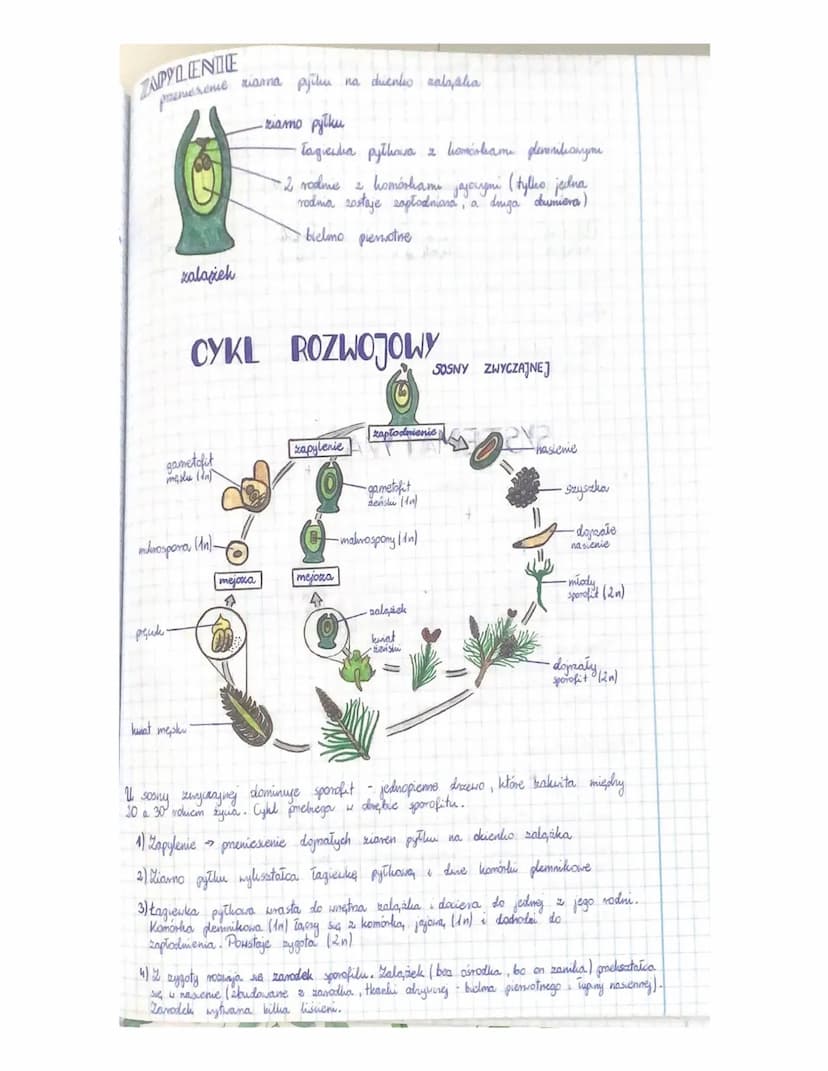 ZAPYLENIE
przeniesienie ziarna pyłku na okienko zalążka
ziarno pyłku
łagiewka pyłkowa z komórkami plemnikowymi
2 rodnie z komórkami jajowymi (tylko jedna
rodnia zostaje zapłodniona, a druga obumiera)
bielmo pierwotne
zalążek
CYKL ROZWOJOWY
SOSNY ZWYCZAJNEJ
zapłodnienie
zapylenie
nasienie
gametofit
męski (1n)
gametofit
żeński (1n)
szyszka
mikrospora (1n)
makrospory (1n)
dojrzałe
nasienie
mejoza
mejoza
młody
sporofit (2n)
zalążek
pręcik
kwiat
żeński
dojrzały
sporofit (2n)
kwiat męski
U sosny zwyczajnej dominuje sporofit - jednopienne drzewo, które zakwita między
20 a 30 rokiem życia. Cykl przebiega w obrębie sporofitu.
1) Zapylenie → przeniesienie dojrzałych ziaren pyłku na okienko zalążka
2) Ziarno pyłku wykształca łagiewkę pyłkową i dwie komórki plemnikowe
3) Łagiewka pyłkowa wrasta do wnętrza zalążka i dociera do jednej z jego rodni.
Komórka plemnikowa (1n) łączy się z komórką jajową (1n) i dochodzi do
zapłodnienia. Powstaje zygota (2n)
4) Z zygoty rozwija się zarodek sporofitu. Zalążek (bez ośrodka, bo on zanika) przekształca
się w nasienie (zbudowane z zarodka, tkanki odżywczej - bielma pierwotnego i łupiny nasiennej).
Zarodek wytwarza kilka liścieni.